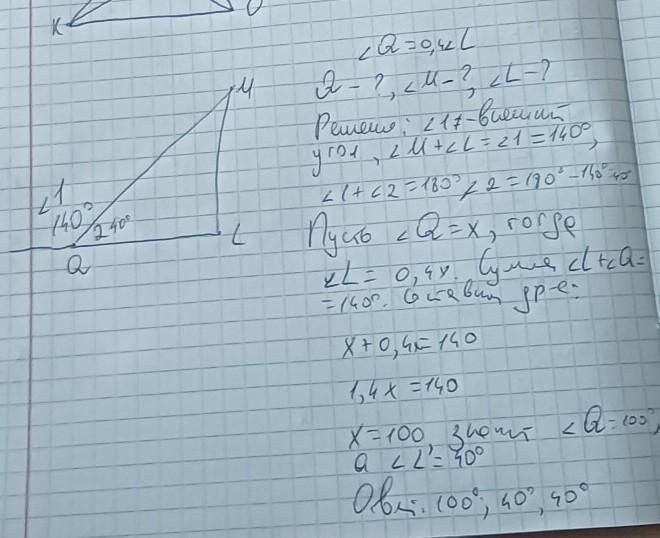 K
∠Q=0,4∠L
Q-?, ∠M-?, ∠L-?
M
Решение: ∠1 -внешний
угол, ∠M+∠L=∠1=140°,
∠1
140°
2 40°
L
Q
∠1+∠2=180° ∠2=190°-140°=40°
Пусть ∠Q=x, тогда
∠L=0,4x. Сумма ∠L+∠Q=
=140°. Составим ур-е:
x+0,4x=140
1,4x=140
x=100, значит ∠Q=100°,
а ∠L=40°
Отв.: 100°; 40°, 40°